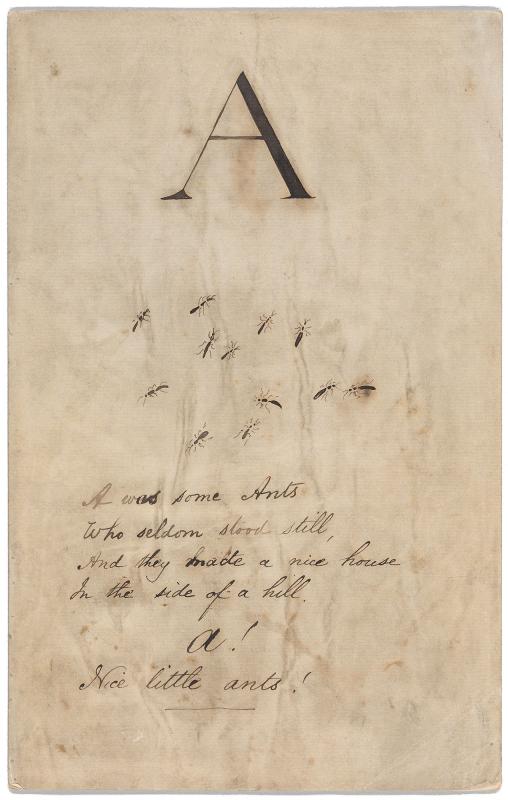 A
A was some Ants
Who seldom stood still,
And they made a nice house
In the side of a hill.
a!
Nice little ants!